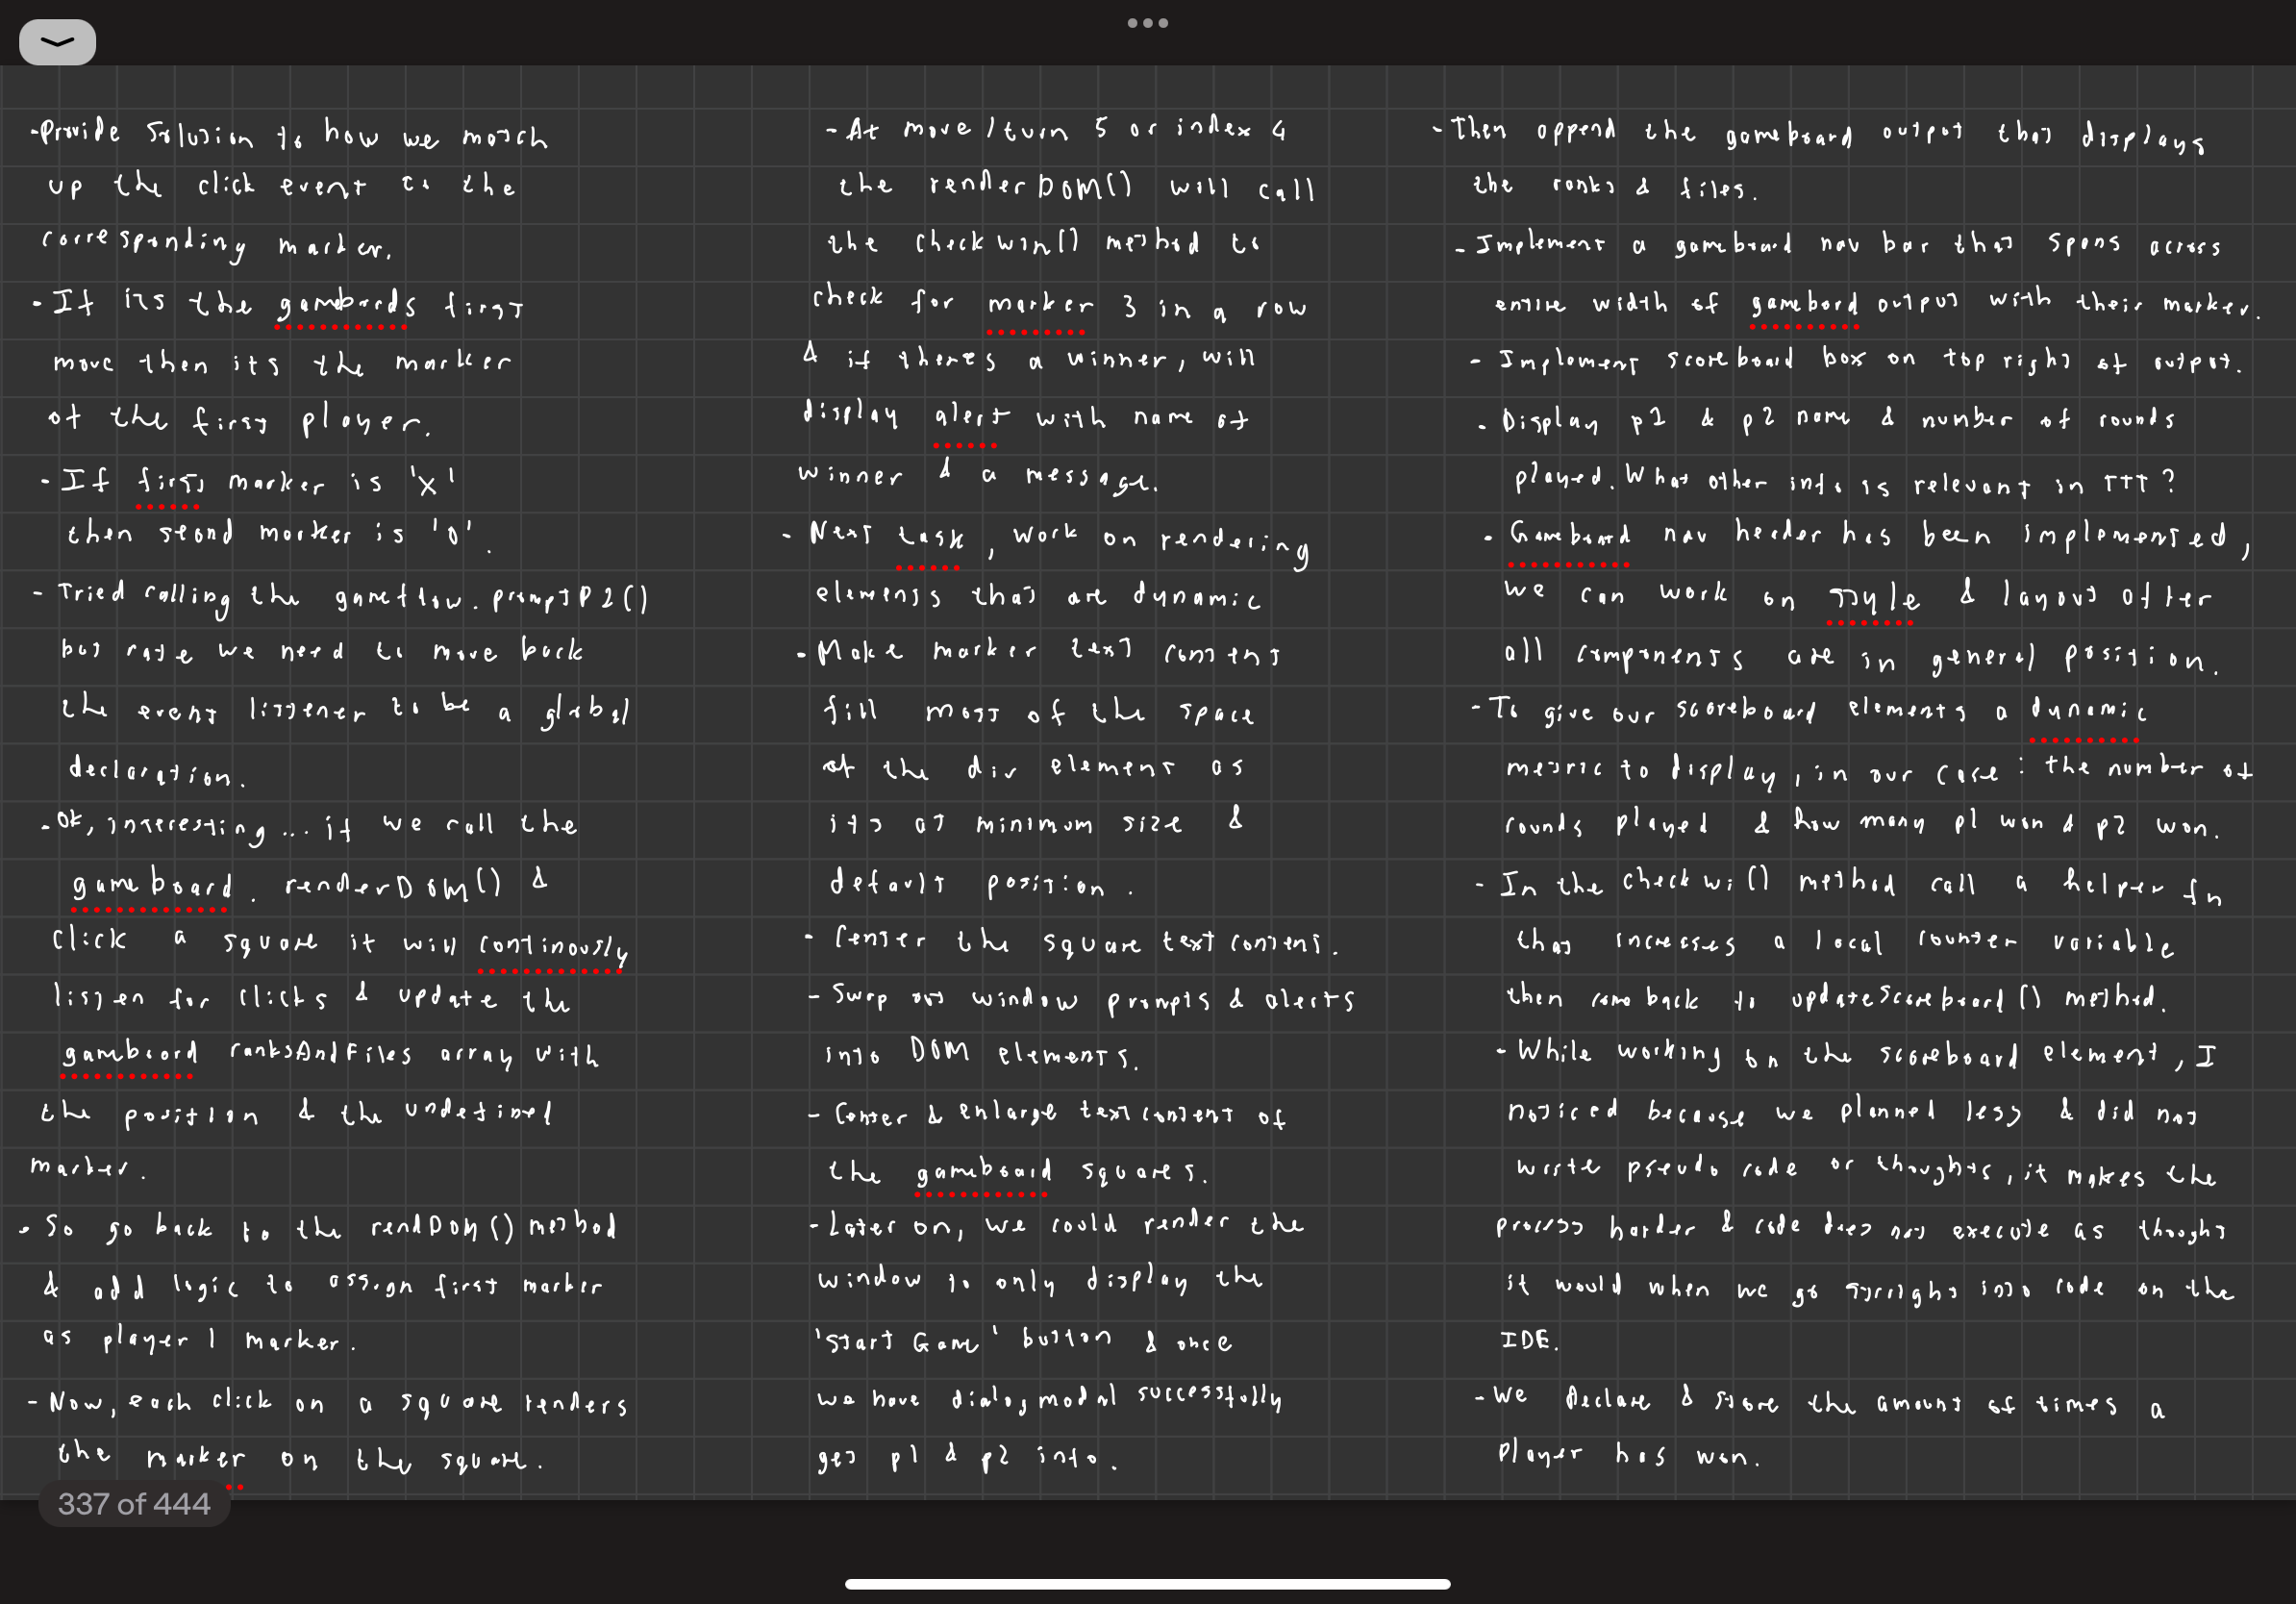 -Provide Solusion to how we match
up the click event to the
corresponding marker.
- If its the gamebords first
move then its the marker
of the first player.
- If first marker is 'X'
then seond marker is 'O'.
- Tried calling the gameflow.promptP2()
but we need to move back
the event listener to be a global
declaration.
- Ok, interesting... if we call the
gameboard.renderDOM() &
click a square it will continously
listen for clicks & update the
gameboord ranksAndFiles array with
the position & the undefined
marker.
- So go back to the rendDOM() method
& add logic to assign first marker
as player 1 marker.
- Now, each click on a square renders
the marker on the square.
- At move/turn 5 or index 4
the renderDOM() will call
the checkwin() method to
check for marker 3 in a row
& if theres a winner, will
display alert with name of
winner & a message.
- Next task, work on rendering
elements that are dynamic
- Make marker text content
fill most of the space
of the div element as
its at minimum size &
default position.
- Center the square text content.
- Swap out window prompts & alerts
into DOM elements.
- Center & enlarge text content of
the gameboard squares.
- Later on, we could render the
window to only display the
'Start Game' button & once
we have dialog modal successfully
get p1 & p2 info.
- Then append the gameboard output that displays
the ranks & files.
- Implement a gameboard nav bar that spans across
entire width of gamebord output with their marker.
- Implement scoreboard box on top right of output.
- Display p1 & p2 name & number of rounds
played. What other info is relevant in TTT?
- Gameboard nav header has been implemented,
we can work on style & layout after
all components are in general position.
- To give our scoreboard elements a dynamic
metric to display, in our case: the number of
rounds played & how many p1 won & p2 won.
- In the checkwi() method call a helper fn
that increases a local counter variable
then come back to updateScoreboard() method.
- While working on the scoreboard element, I
noticed because we planned less & did not
write pseudo code or thoughts, it makes the
process harder & code does not execute as thought
it would when we go straight into code on the
IDE.
- We Declare & store the amount of times a
player has won.
337 of 444